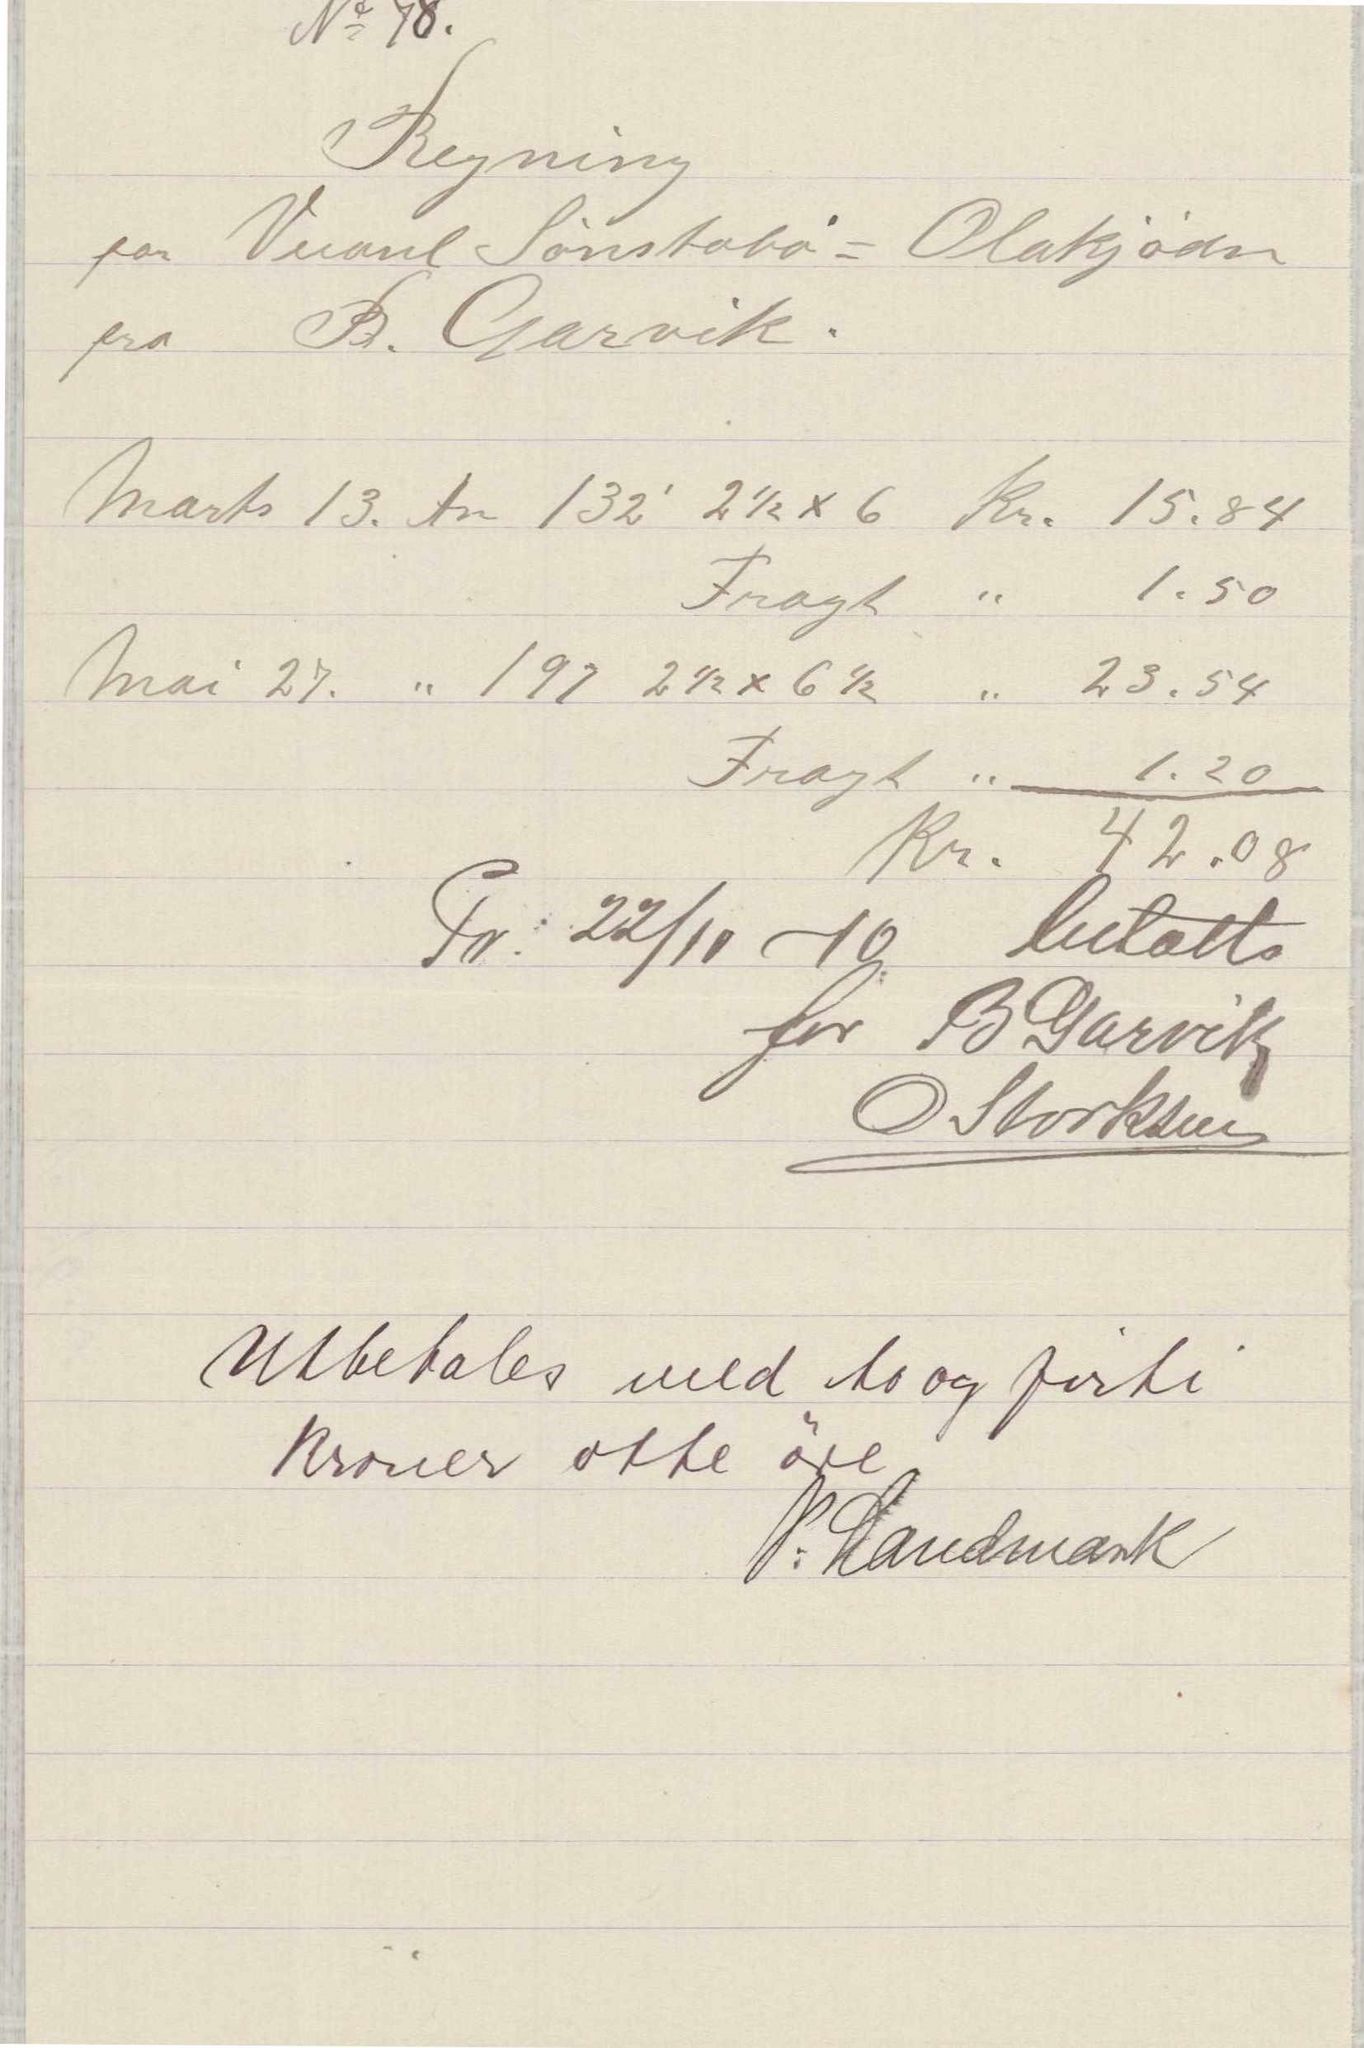 No 78.
Regning
for Veianl Sönstabö = Olakjödn
fra B. Garvik.
Marts 13. An 132' 2 1/2 x 6 Kr. 15.84
Fragt " 1.50
Mai 27. " 197 2 1/2 x 6 1/2 " 23.54
Fragt " 1.20
Kr. 42.08
22/10 -10 betalt
for B Garvik
O Storksen
Utbetales med to og firti
kroner otte öre
P. Landmark